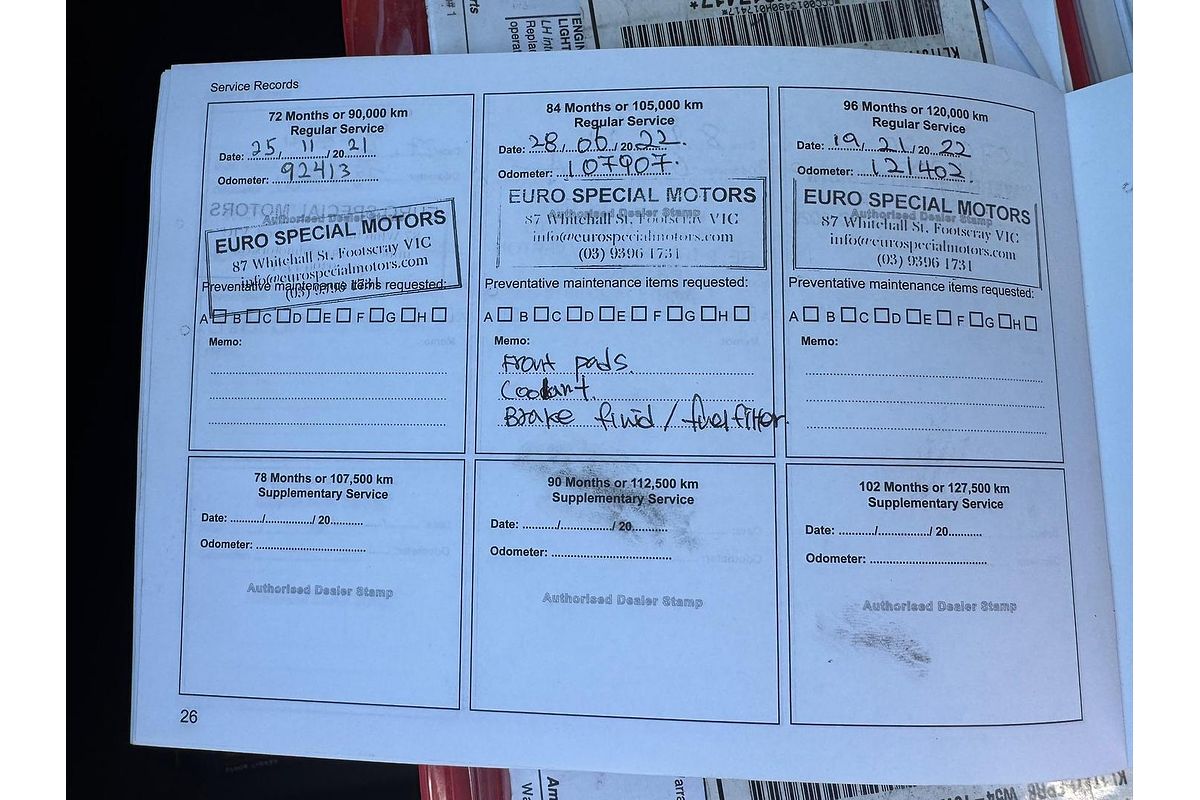 Service Records
72 Months or 90,000 km
Regular Service
Date: 25/11/2021
Odometer: 92413
Authorised Dealer Stamp
EURO SPECIAL MOTORS
87 Whitehall St, Footscray VIC
info@eurospecialmotors.com
(03) 9396 1731
Preventative maintenance items requested:
A B C D E F G H
Memo:
84 Months or 105,000 km
Regular Service
Date: 28/06/2022.
Odometer: 107907.
Authorised Dealer Stamp
EURO SPECIAL MOTORS
87 Whitehall St, Footscray VIC
info@eurospecialmotors.com
(03) 9396 1731
Preventative maintenance items requested:
A B C D E F G H
Memo:
Front pads.
Coolant.
Brake fluid / fuel filter.
96 Months or 120,000 km
Regular Service
Date: 19/21/2022
Odometer: 121402.
Authorised Dealer Stamp
EURO SPECIAL MOTORS
87 Whitehall St, Footscray VIC
info@eurospecialmotors.com
(03) 9396 1731
Preventative maintenance items requested:
A B C D E F G H
Memo:
78 Months or 107,500 km
Supplementary Service
Date: ........../................/ 20...........
Odometer: ....................................
Authorised Dealer Stamp
90 Months or 112,500 km
Supplementary Service
Date: ........../................/ 20...........
Odometer: ....................................
Authorised Dealer Stamp
102 Months or 127,500 km
Supplementary Service
Date: ........../................/ 20...........
Odometer: ....................................
Authorised Dealer Stamp
26